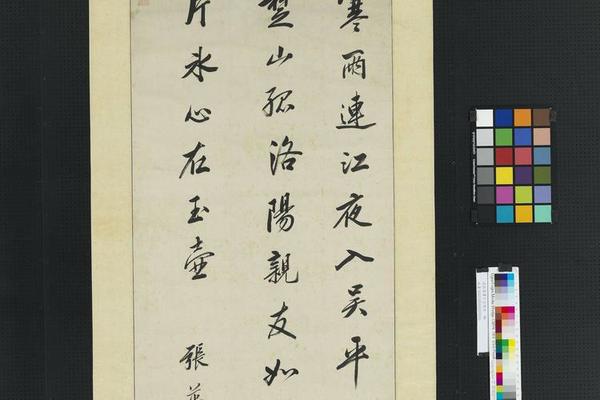 寒雨連江夜入吳平
楚山孤洛陽親友如
片氷心在玉壺
張